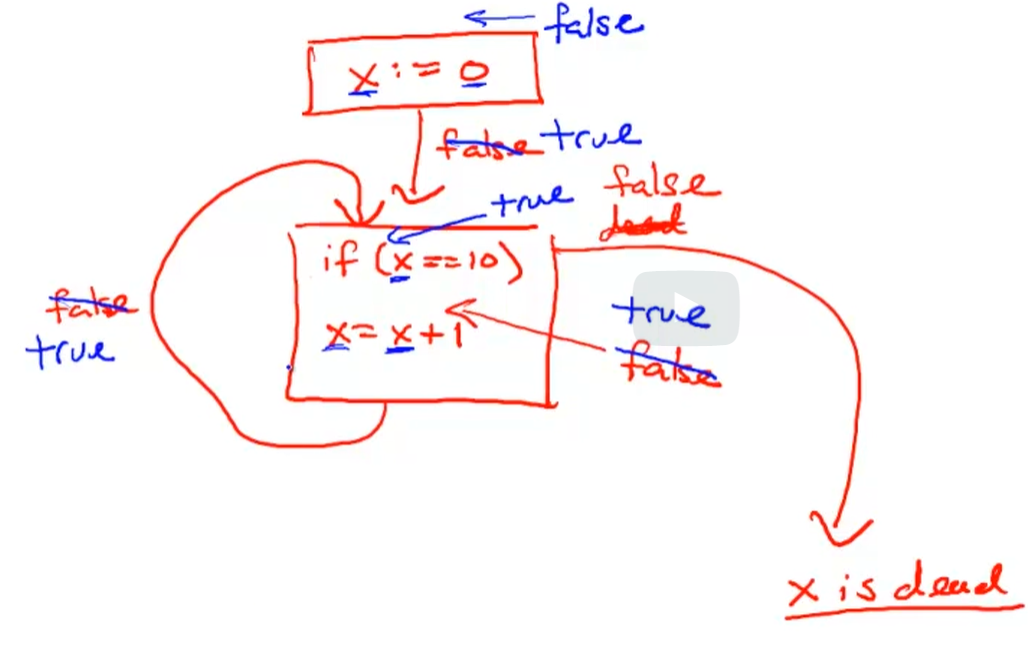 false
x := 0
false true
true
false
dead
if (x==10)
x= x+1
false
true
true
false
x is dead